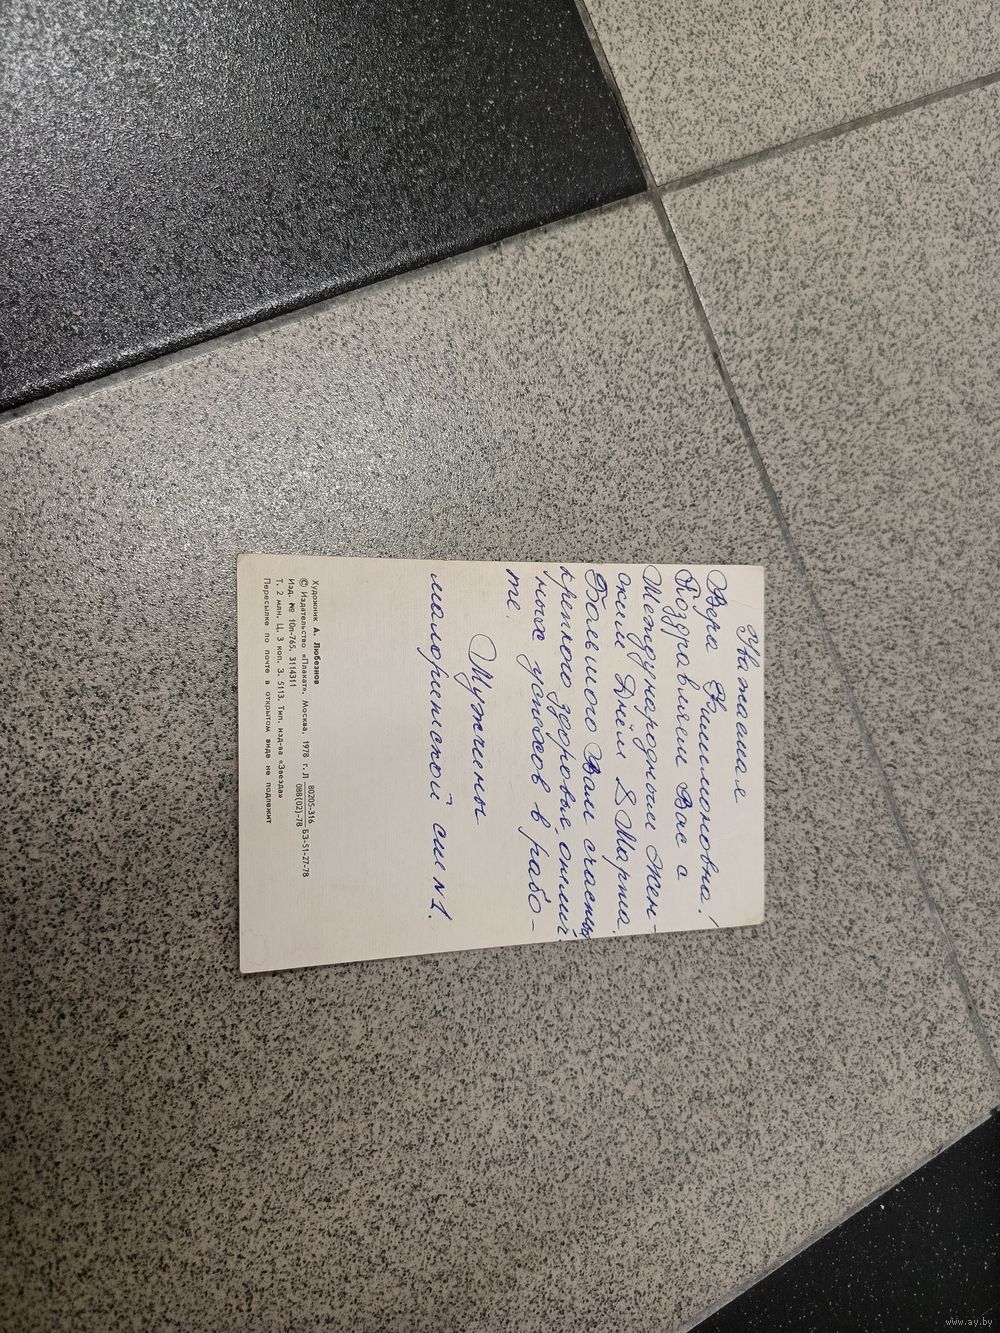 Уважаемая
Вера Филимоновна!
Поздравляем Вас с
Международным Жен-
ским Днём 8 Марта.
Большого Вам счастья,
крепкого здоровья, отлич
ных успехов в рабо-
те.
Мужчины
малоритской сш №1.
Художник А. Любезнов
© Издательство «Плакат», Москва, 1978 г. Л 80205-316 БЗ-51-27-78
088(02)-78
Изд. № 10п-765. 3114311
Т. 2 млн. Ц. 3 коп. З. 5113. Тип. изд-ва «Звезда»
Пересылке по почте в открытом виде не подлежит
www.ay.by